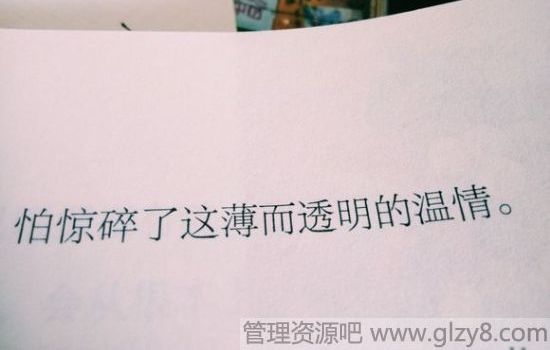 怕惊碎了这薄而透明的温情。
管理资源吧 www.glzy8.com